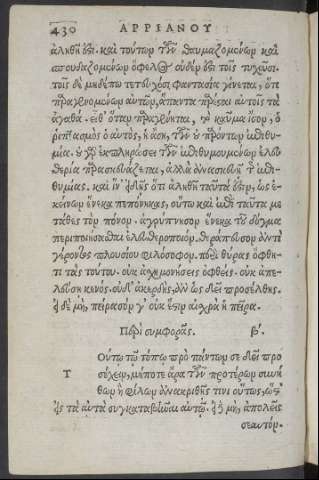 430 ΑΡΡΙΑΝΟΥ
ἀληθῆ ὅτι καὶ τούτων τῶν θαυμαζομένων καὶ
σπουδαζομένων ὄφελος οὐδέν ἐστι τοῖς τυχοῦσι.
τοῖς δὲ μηδέπω τετυχόσι φαντασία γίνεται, ὅτι
παραγενομένων αὐτῶν, ἅπαντα παρέσαι αὐτοῖς τὰ
ἀγαθά. εἶθ' ὅταν παραγένωνται, τὸ καῦμα ἴσον, ὁ
ῥιπτασμὸς ὁ αὐτός, ἡ ἄση, τῶν οὐ παρόντων ἐπιθυ-
μία. οὐ γὰρ ἐκπληρώσει τῶν ἐπιθυμουμένων ἐλευ-
θερία παρασκευάζεται, ἀλλὰ ἀνασκευῇ τῆς ἐπι-
θυμίας. καὶ ἵν' εἰδῇς ὅτι ἀληθῆ ταῦτά ἐστιν, ὡς ἐ-
κείνων ἕνεκα πεπόνηκας, οὕτω καὶ ἐπὶ ταῦτα με
τάθες τὸν πόνον. ἀγρύπνησον ἕνεκα τοῦ δόγμα
περιποιήσασθαι ἐλευθεροποιόν. θεράπευσον ἀντὶ
γέροντος πλουσίου φιλόσοφον. περὶ θύρας ὄφθη-
τι τὰς τούτου. οὐκ ἀσχημονήσεις ὀφθείς. οὐκ ἀπε-
λεύσῃ κενός. οὐδ' ἀκερδής, ἂν ὡς δεῖ προσέλθῃς.
εἰ δὲ μή, πείρασόν γ' οὐκ ἔστιν αἰσχρὰ ἡ πεῖρα.
Περὶ συμφορᾶς. β'.
Οὕτω τῷ τόπῳ πρὸ πάντων σε δεῖ προ
Τ σέχειν, μήποτε ἄρα τῶν προτέρων συνή
θων ἢ φίλων ἀνακριθῇς τινι οὕτως, ὥστ'
εἰς τὰ αὐτὰ συγκαταβῆναι αὐτῷ. εἰ δὲ μή, ἀπολεῖς
σεαυτόν.